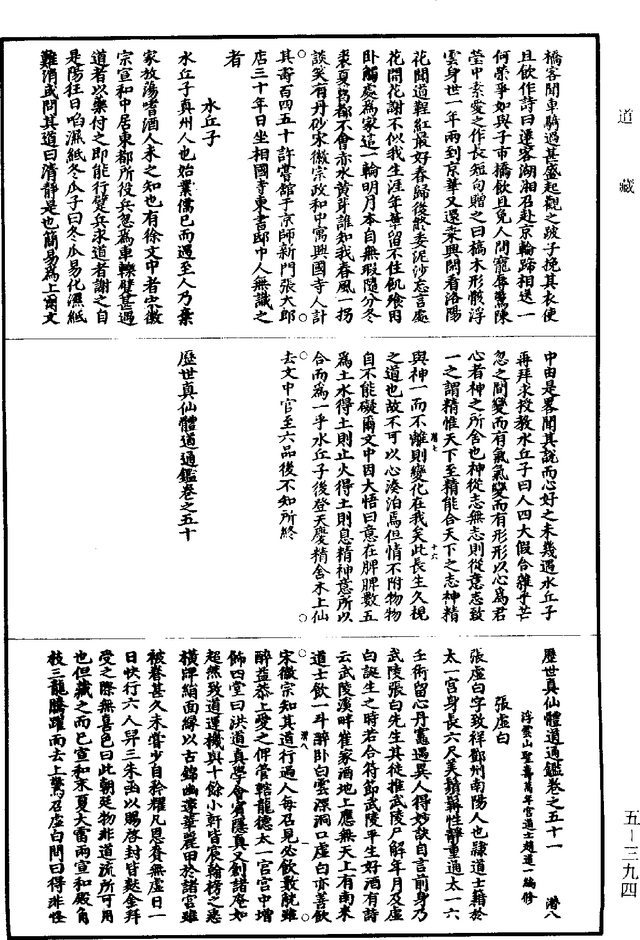 道藏
橋客聞車騎過甚盛起觀之跛子挽其衣使
且飲作詩曰遷客湖湘召赴京輪蹄相送一
何榮爭如與子市橋飲且免人間寵辱驚陳
瑩中素愛之作長短句贈之曰槁木形骸浮
雲身世一年兩到京華又還乘興閑看洛陽
花聞道鞓紅最好春歸後終委泥沙忘言處
花開花謝不似我生涯年華留不住飢飡困
卧觸處為家這一輪明月本自無瑕隨分冬
裘夏葛都不會赤水黄芽誰知我春風一拐
談笑有丹砂宋徽宗政和中寓興國寺人計
其壽百四五十許嘗舘于京師新門張大郎
店三十年日坐相國寺東書邸中人無識之
者
水丘子
水丘子真州人也始業儒已而遇至人乃棄
家放蕩嗜酒人未之知也有徐文中者宋徽
宗宣和中居東都所役兵忽為車轢臂甚遇
道者以藥付之即能行臂兵求道者謝之自
是陽狂日啗濕紙冬瓜子曰冬瓜易化濕紙
難消或問其道曰清靜是也簡易為上爾文
中由是畧聞其說而心好之未幾遇水丘子
再拜求授教水丘子曰人四大假合雜乎芒
忽之間變而有氣氣變而有形形以心為君
心者神之所舍也神從志無志則從意志致
一之謂精惟天下至精能合天下之志神精
與神一而不離則變化在我矣此長生久視
之道也故不可以心湊泊焉但情不附物物
自不能礙爾文中因大悟曰意在脾脾數五
為土水得土則止火得土則息精神意所以
合而為一乎水丘子後登天慶精舍木上仙
去文中官至六品後不知所終
歷世真仙體道通鑑卷之五十
歷世真仙體道通鑑卷之五十一 潛八
浮雲山聖壽萬年宫道士趙道一編修
張虛白
張虛白字致祥鄧州南陽人也隷道士籍於
太一宫身長六尺美鬚髯性靜重通太一六
壬術留心丹竈遇異人得妙訣自言前身乃
武陵張白先生其徒推武陵尸解年月及虛
白誕生之時若合符節武陵平生好酒有詩
云武陵溪畔崔家酒地上應無天上有南來
道士飲一斗醉卧白雲深洞口虛白亦善飲
宋徽宗知其道行過人每召見必飲數觥雖
醉益恭上愛之俾管轄龍德太一宫宫中增
飾四堂曰洪道真學會賓隱真又創諸庵如
超然致道運機與十餘小軒皆宸翰榜之悉
橫牌絹面緣以古錦幽蓮華麗甲於諸宫雖
被眷甚久未嘗少自矜耀凡恩賚無虛日一
日快行六人舁三朱函以賜啓封皆麩金拜
受之際無喜色曰此朝廷物非道流所可用
也但藏之而已宣和末夏大雷雨宣和殿角
枝三龍騰躍而去上驚召虛白問曰得非怪
五—三九四